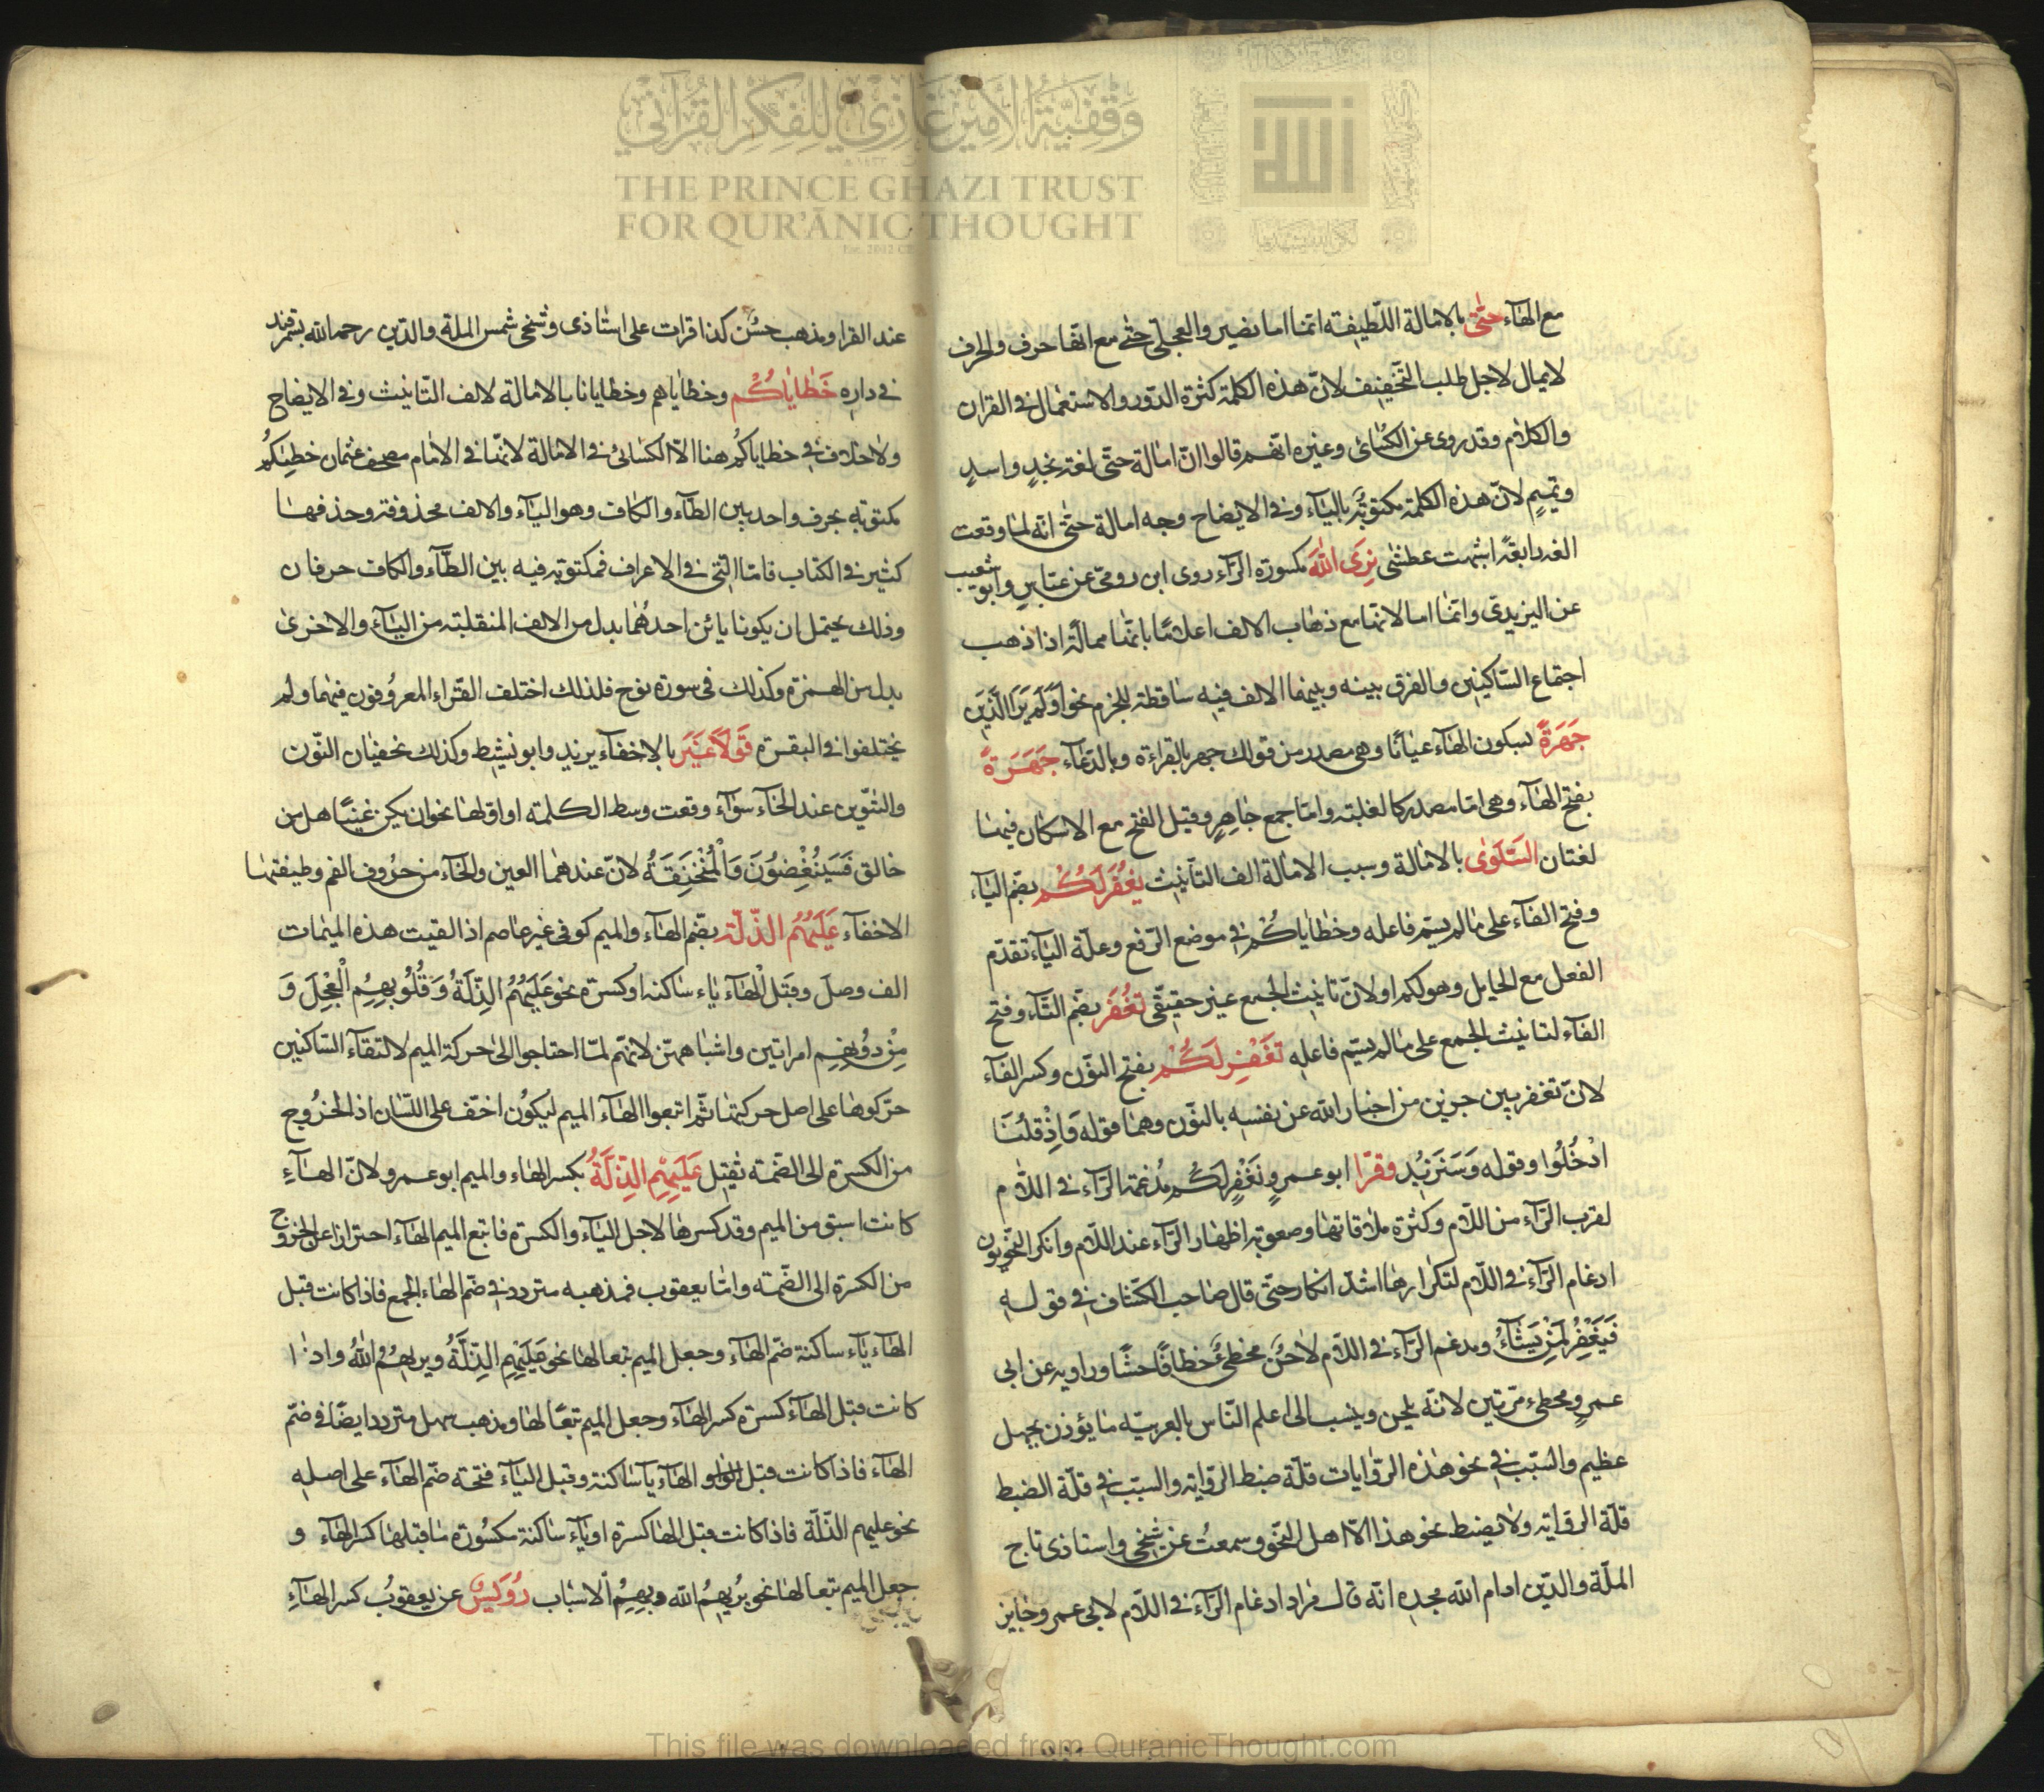 وقفية الأمير غازي للفكر القرآني
THE PRINCE GHAZI TRUST
FOR QUR'ĀNIC THOUGHT
مع الهآء حتّى بالامالة اللّطيفة اتنا اما نصير والعجلى حتى مع انّها حرف والحرف
لايمال لاجل طلب التّخفيف لانّ هذه الكلمة كثرة الدّور والاستعمال فى القران
والكلام وقد روى عن الكسائى وغيره انّهم قالوا انّ امالة حتّى لغة نجدٍ واسدٍ
وتميمٍ لانّ هذه الكلمة مكتوبة باليآء وفى الايضاح وجه امالة حتّى انّه لما وقعت
الفه رابعةً اشبهت عطشى نرى الله مكسورة الرّآء روى ابن رومى عن عباسٍ وابو شعيب
عن اليزيدى وانّما امالا نها مع ذهاب الالف اعلامًا بانّها ممالة اذا ذهب
اجتماع السّاكنين والفرق بينه وبينها الالف فيه ساقطة للجزم نحو اولم ير الّذين
جَهْرَةً بسكون الهآء عيانًا وهى مصدر من قولك جهر بالقراءة وبالدّعآء جَهَرَةً
بفتح الهآء وهى امّا مصدر كالغلبة وامّا جمع جاهرٍ وقيل الفتح مع الاسكان فيها
لغتان السّلوى بالامالة وسبب الامالة الف التّأنيث يغفر لكم بضمّ اليآء
وفتح الفآء على مالم يسمّ فاعله وخطاياكم فى موضع الرّفع وعلّة اليآء تقدّم
الفعل مع الحايل وهو لكم اولانّ تانيث الجمع غير حقيقّى تغفر بضمّ التّآء وفتح
الفآء لتانيث الجمع على مالم يسمّ فاعله نغفر لكم بفتح النّون وكسر الفآء
لانّ نغفر بين خبرين من اخبار الله عن نفسه بالنّون وهما قوله وَاِذْ قلنا
ادْخُلُوا وقوله وَسَنَزيدُ وقرا ابوعمرٍو نغفر لكم مُدغمة الرّآء فى اللّام
لقرب الرّآء من اللّام وكثرة ملاقاتها وصعوبة اظهار الرّآء عند اللّام وانكر النّحويون
ادغام الرّآء فى اللّام لتكرارها اشدّ انكار حتّى قال صاحب الكشّاف فى قوله
فَيَغْفِرُ لِمَنْ يَشآءُ ومدغم الرّآء فى اللّام لاحنٌ مخطئٌ خطا فاحشًا وراويه عن ابى
عمرٍو مخطىء مرّتين لانّه يلحن وينسب الى اعلم النّاس بالعربيّة مايؤذن بجهل
عظيم والسّبب فى نحو هذه الرّوايات قلّة ضبط الرّواية والسبّب فى قلّة الضبط
قلّة الرواية ولايضبط نحو هذا الاّ اهل النّحو وسمعتُ عن شيخى واستاذى تاج
الملّة والدّين ادام الله مجده انّه قال مراد ادغام الرّآء فى اللّام لابى عمرو جايز
عند القرا ومذهب حسُن كذا قرات على استاذى وشيخى شمس الملة والدّين رحمه الله بسمرقند
فى داره خَطاياكُم وخطاياهم وخطايانا بالامالة لالف التّانيث وفى الايضاح
ولاخلاف فى خطاياكم هنا الاّ الكسائى فى الامالة لانّها فى الامام مصحف عثمان خطيكم
مكتوبة بحرف واحد بين الطّآء والكاف وهو اليآء والالف محذوفة وحذفها
كثير فى الكتاب فامّا الّتى فى الاعراف فمكتوبة فيه بين الطّآء والكاف حرفان
وذلك يحتمل ان يكونا يائن احدهُما بدل من الالف المنقلبة من اليآء والاخرى
بدل من الهمزة وكذلك فى سورة نوح فلذلك اختلف القّراء المعروُفون فيهما ولم
يختلفوا فى البقرة قَولًا غَيرَ بالاخفآء يزيد وابونشيط وكذلك تخفيان النّون
والتنوين عند الخآء سوآء وقعت وسط الكلمة او اوّلها نحو ان يكن غنيًّا هل من
خالق فَسَيُنْغِضُونَ وَالْمُنْخَنِقَةُ لانّ عندهما العين والخآء من حرُوف الفم وطيفتها
الاخفآء عَلَيهُمُ الذّلّة بضّم الهآء والميم كوفى غير عاصم اذا لقيت هذه الميمات
الف وصل وقبل الْهآء ياء ساكنه اوكسرة نحو عَلَيهُمُ الذِّلَّةُ وَقُلُوبِهِمُ الْعِجْلَ وَ
مِنْ دُونِهِمِ امراتين واشباههنّ لانّهم لمّا احتاجوا الى حركة الميم لالتقآء السّاكنين
حرّكوها على اصل حركتها ثمّ اتبعوا الهآء الميم ليكُون اخفّ على اللّسان اذ الخرُوج
من الكسرة الى الضّمة ثقيل عَلَيهِمِ الذِّلّةُ بكسر الهاء والميم ابوعمرو لانّ الهآءِ
كانت اسبق من الميم وقد كسرها لاجل اليآء والكسرة فاتبع الميم الهآء احترازا عن الخروج
من الكسرة الى الضّمة وامّا يعقوب فمذهبه متردد فى ضّم الهاء الجمع فاذا كانت قبل
الهآء يآء ساكنة ضّم الهآء وجعل الميم تبعا لها نحو عَلَيْهُمُ الذِّلَّةُ ويريهُمُ اللهُ واذا
كانت قبل الهآء كسرة كسر الهآء وجعل الميم تبعًا لها ومذهب سهل متردد ايضًا فى ضمّ
الهآء فاذا كانت قبل الواو الهآء يآ ساكنة وقبل اليآء فتحة ضّم الهآء على اصله
نحو عليهم الذّلّة فاذا كانت قبل الها كسرة اويآء ساكنة مكسُورة ماقبلها كسر الهآء و
جعل الميم تبعا لها نحو يُريهِمُ الله وبِهِمُ الاسْباب رُوَيسٌ عن يعقوبُ كسر الهآءِ
This file was downloaded from QuranicThought.com